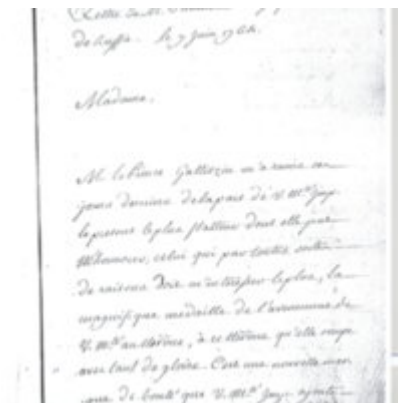 Lettre de M.
de Russie. le 7 Juin 1764.
Madame,
M. le Prince Gallitzin m'a remis ces
jours derniers de la part de V. M.té Imp.
le présent le plus flatteur dont elle put
m'honnorer, celui qui par toutes sortes
de raisons doit m'intéresser le plus, la
magnifique médaille de l'avenement de
V. M.té au thrône, à ce thrône qu'elle occupe
avec tant de gloire. C'est une nouvelle mar
que de bonté que V. M.té Imp. ajoute